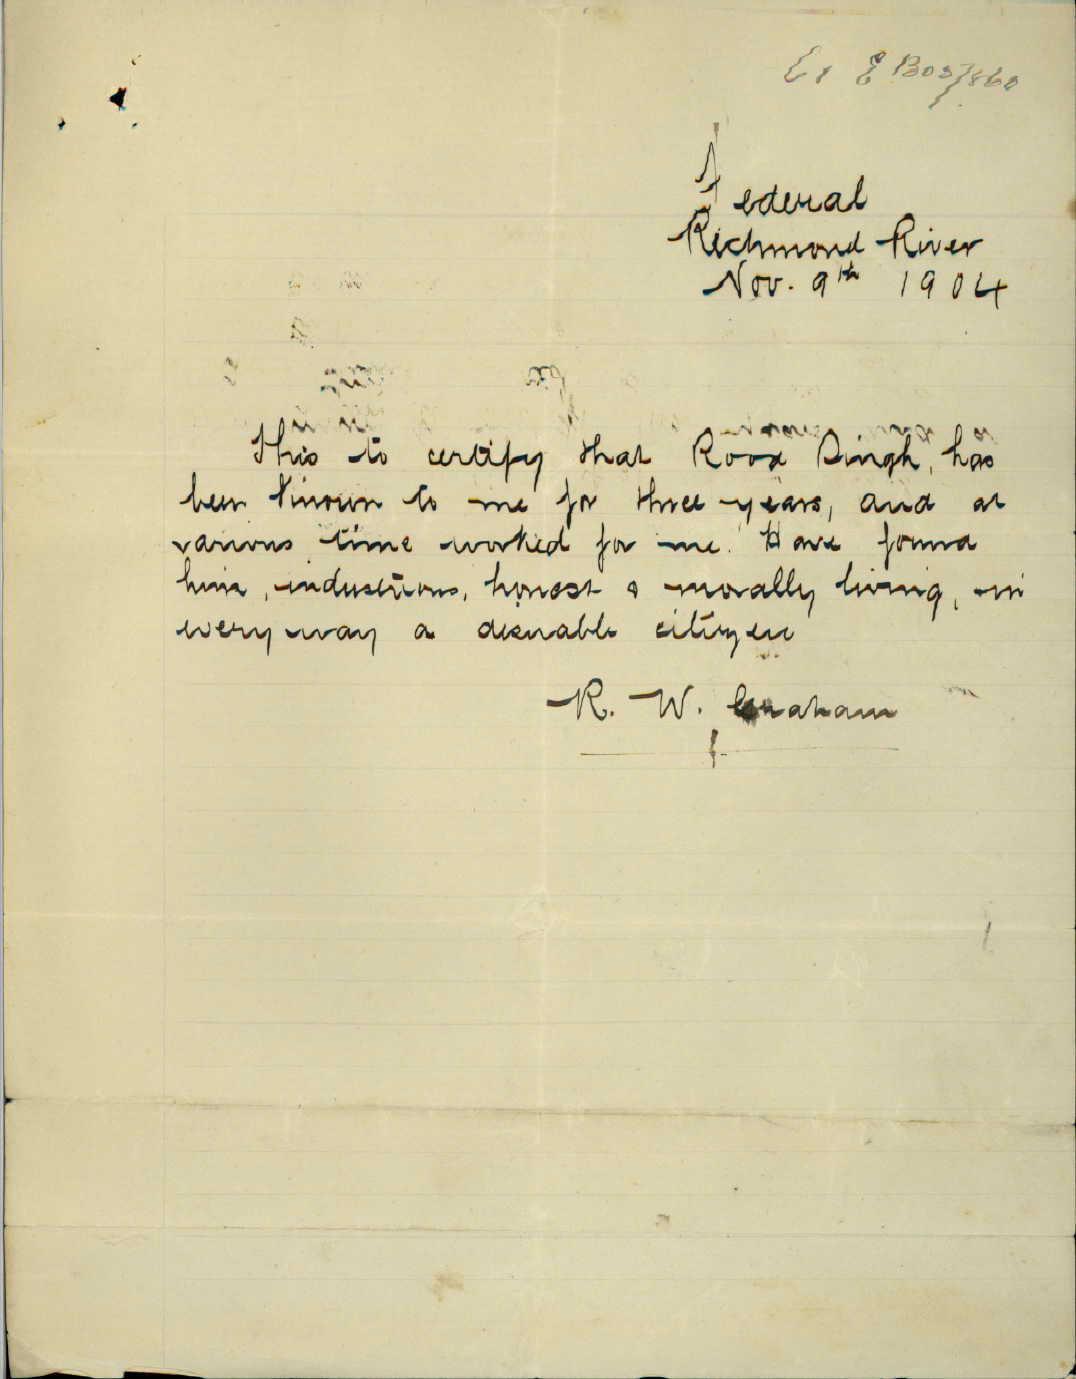 Federal
Richmond River
Nov. 9th 1904
This to certify that Rood Singh, has
been known to me for three years, and at
various time worked for me. Have found
him, industrious, honest & morally living, in
every way a desirable citizen
R. W. Graham